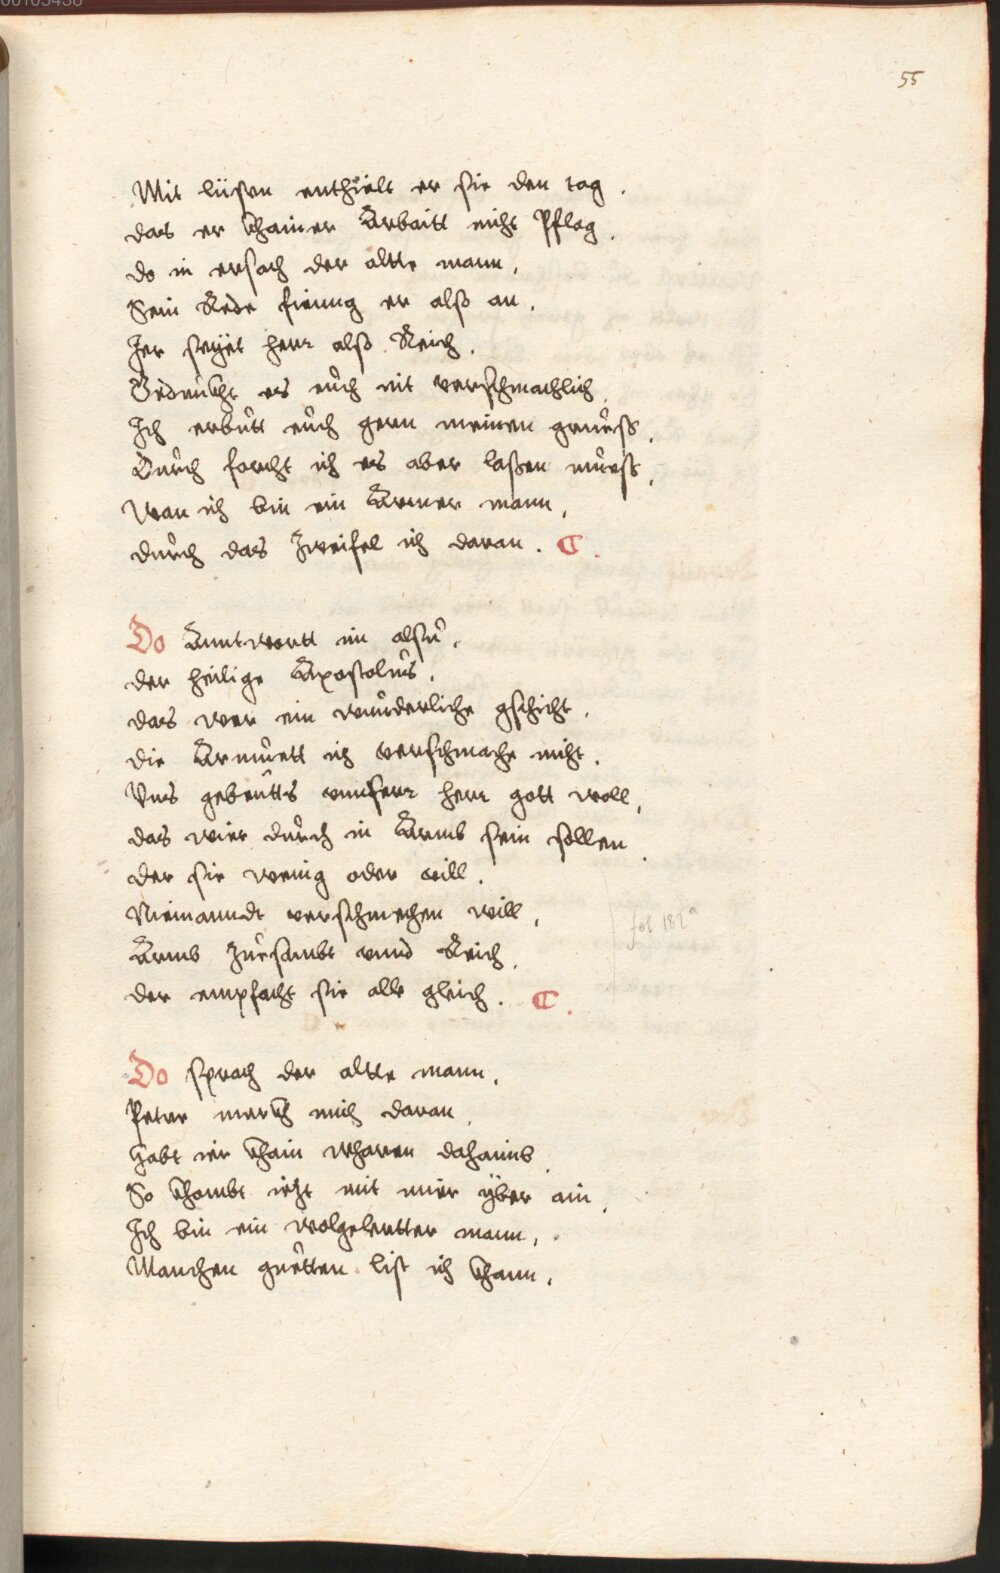 55
Mit lüsen enthielt er sie den tag.
das er khainer Arbaitt nicht Pflag.
do in ersach der altte mann.
Sein Rede fieng er alß an.
Jer seyet herr alß Reich.
Gedeücht es eüch nit verschmachlich.
Ich erbütt eüch gern meinen gruess.
Durch forcht ich es aber laßen muess.
Wan ich bin ein Armer mann.
durch das zweifel ich daran.
Do Anntwortt im alsus.
der heilige Apostolus.
das wer ein wunderliche gschicht.
die Armuett ich verschmache nicht.
Vns gebeütts vnnser herr gott woll.
das wier durch in Armb sein sollen.
der sie wenig oder vill.
Niemanndt verschmechen will.
Armb zuesambt vnnd Reich.
der empfacht sie alle gleich.
fol 181a
Do sprach der altte mann.
Peter merckh mich daran.
Habt ier khain wharen dahaimb.
So khombt iezt mit mier yber ain.
Ich bin ein wolgelertter mann.
Manchen guetten list ich khann.